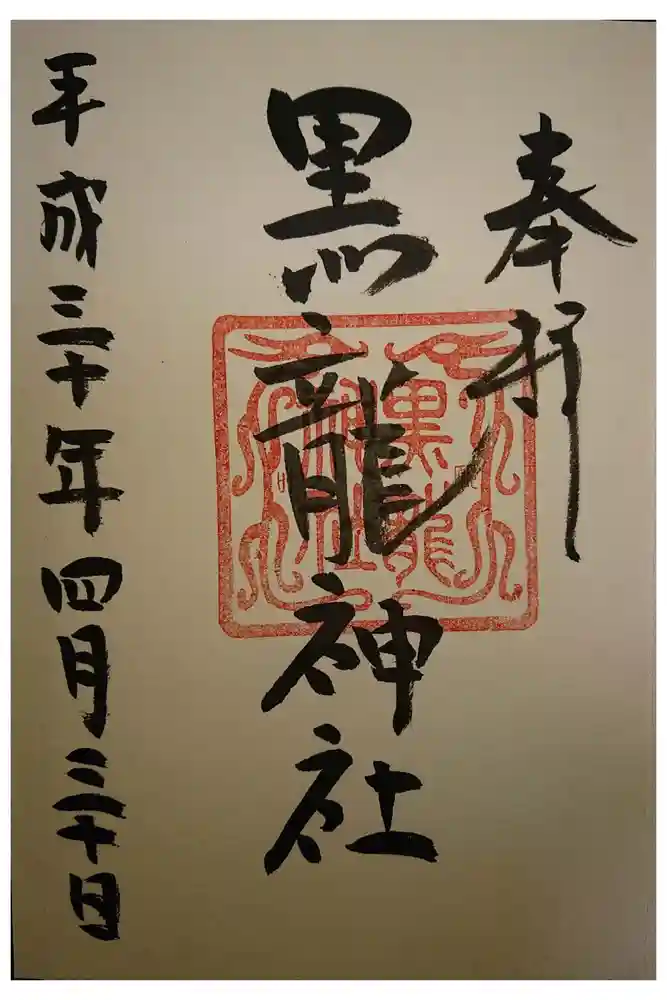 奉拝
黒龍神社
黒龍
神社
平成三十年四月三十日